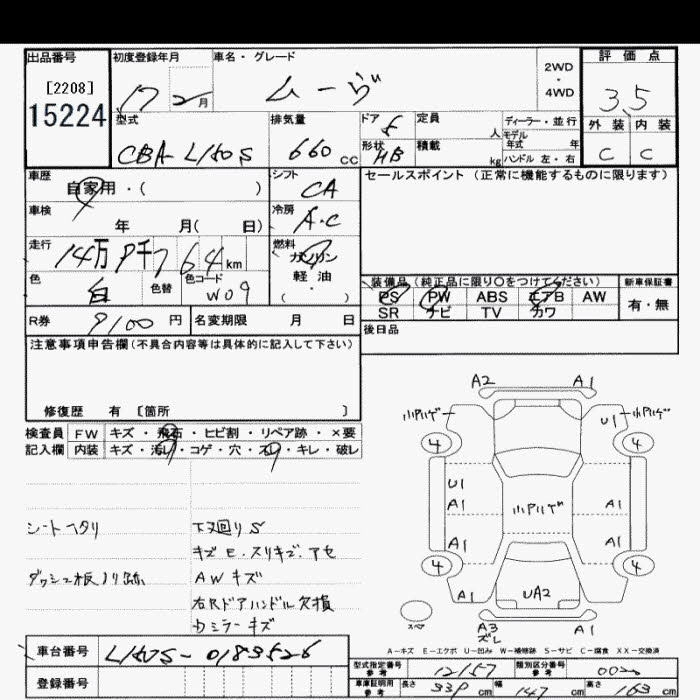 出品番号 初度登録年月 車名・グレード 2WD・4WD 評価点
[2208] 17 2月 ムーヴ 3.5
15224 型式 排気量 ドア 5 定員 人 ディーラー・並行 外装 内装
CBA L150S 660 cc 形状 HB 積載 kg モデル年式 年 ハンドル 左・右 C C
車歴 シフト セールスポイント (正常に機能するものに限ります)
自家用・( ) CA
車検 年 月( 日) 冷房 A・C
走行 14万9千7 64 km 燃料 ガソリン
色 白 色替 色コード W09 軽油・( )
装備品 (純正品に限り○をつけてください) 新車保証書
PS PW ABS エアB AW 有・無
SR ナビ TV カワ
R券 9100 円 名変期限 月 日 後日品
注意事項申告欄(不具合内容等は具体的に記入して下さい)
修復歴 有 [箇所 ]
検査員 FW キズ・飛石・ヒビ割・リペア跡・×要
記入欄 内装 キズ・汚れ・コゲ・穴・スレ・キレ・破レ
A2 A1
小アルゲ U1 小アルゲ
4 4
U1
A1 小アルゲ A1
A1 A1
4 4
A1 UA2 A1
スペア A3 ズレ A1
シートヘタリ 下廻りS
キズE・スリキズ・アセ
ダッシュ板ノリ跡 AWキズ
右Rドアハンドル欠損
内ミラーキズ
A-キズ E-エクボ U-凹み W-補修跡 S-サビ C-腐食 XX-交換済
車台番号 L150S-0183526 型式指定番号 参考 12157 類別区分番号 参考
登録番号 車庫証明用 参考 長さ 339 cm 幅 147 cm 高さ 163 cm